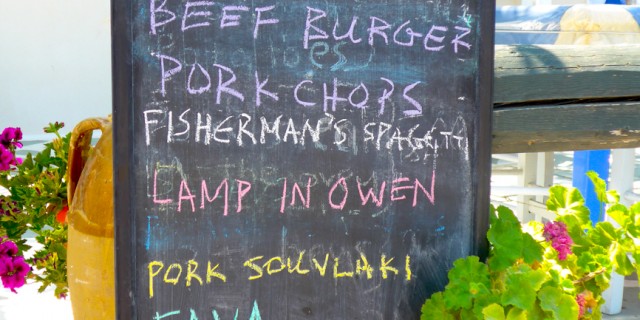 BEEF BURGER
PORK CHOPS
FISHERMAN'S SPAGETTI
LAMP IN OWEN
PORK SOUVLAKI
FAVA